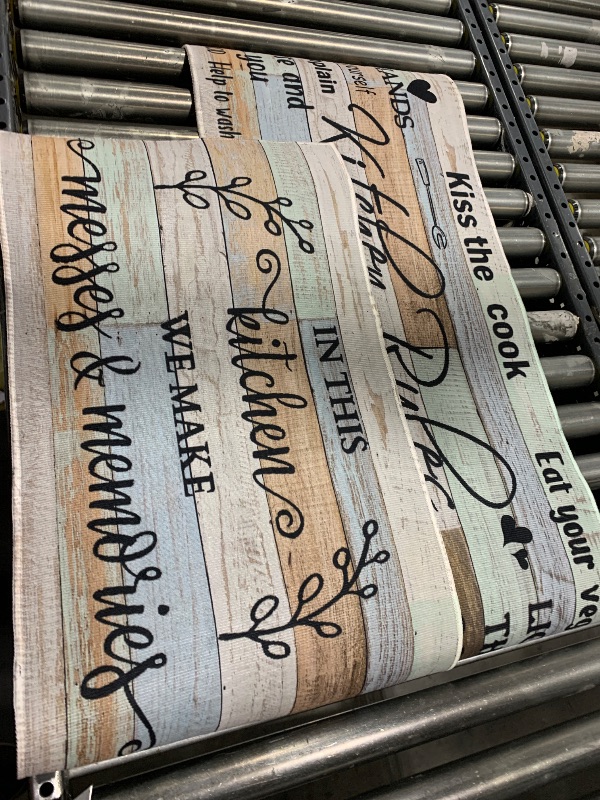 IN THIS
kitchen
WE MAKE
messes & memories
Kiss the cook
Eat your
Kitchen
Rules
yourself
plain
and
you
Help to wash